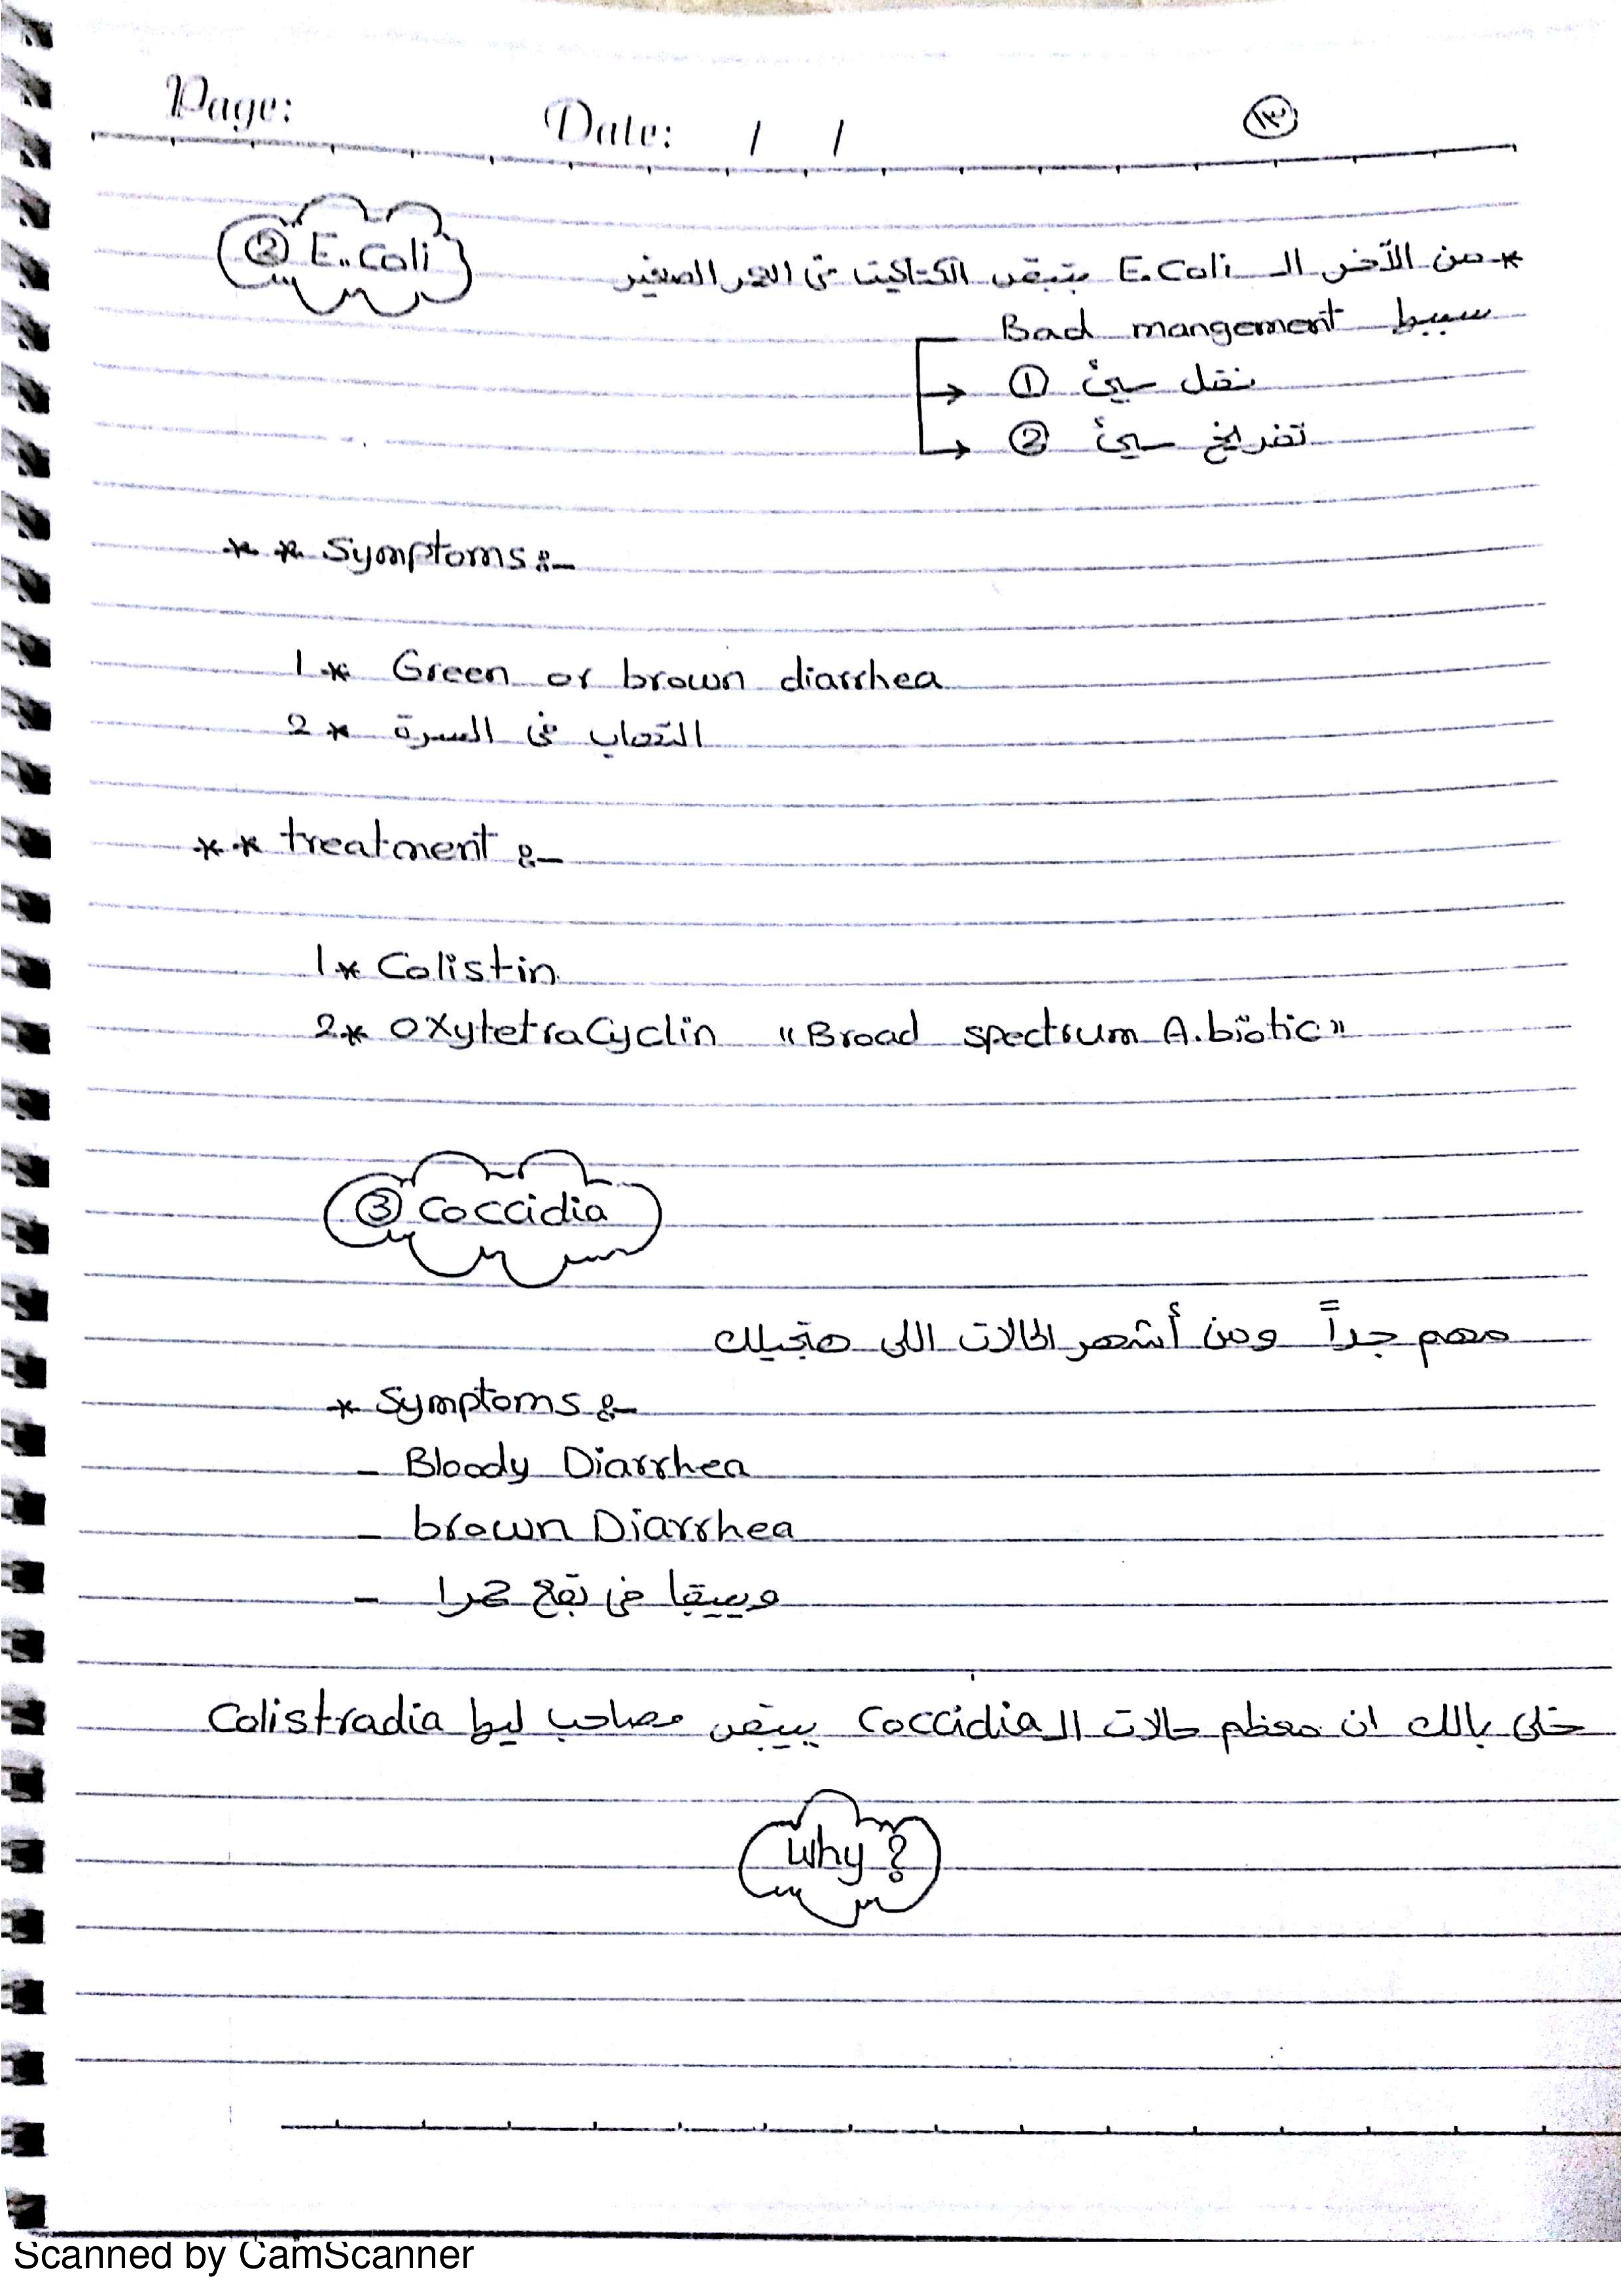 Page: Date: / / ١٣
② E.coli
* من الآخر الـ E.coli بتبقى الكتاكيت فى العمر الصغير
سببها Bad mangement
① نقل سيئ
② تفريخ سيئ
** Symptoms :-
1* Green or brown diarrhea
2* التهاب فى السرة
** treatment :-
1* Colistin
2* OxytetraCyclin "Broad spectrum A.biotic"
③ Coccidia
مهم جداً ومن أشهر الحالات اللى هتجيلك
* Symptoms :-
- Bloody Diarrhea
- brown Diarrhea
- وبيبقا فى بقع حمرا
خلى بالك ان معظم حالات الـ Coccidia بيبقى مصاحب ليها Colistradia
Why ?
Scanned by CamScanner